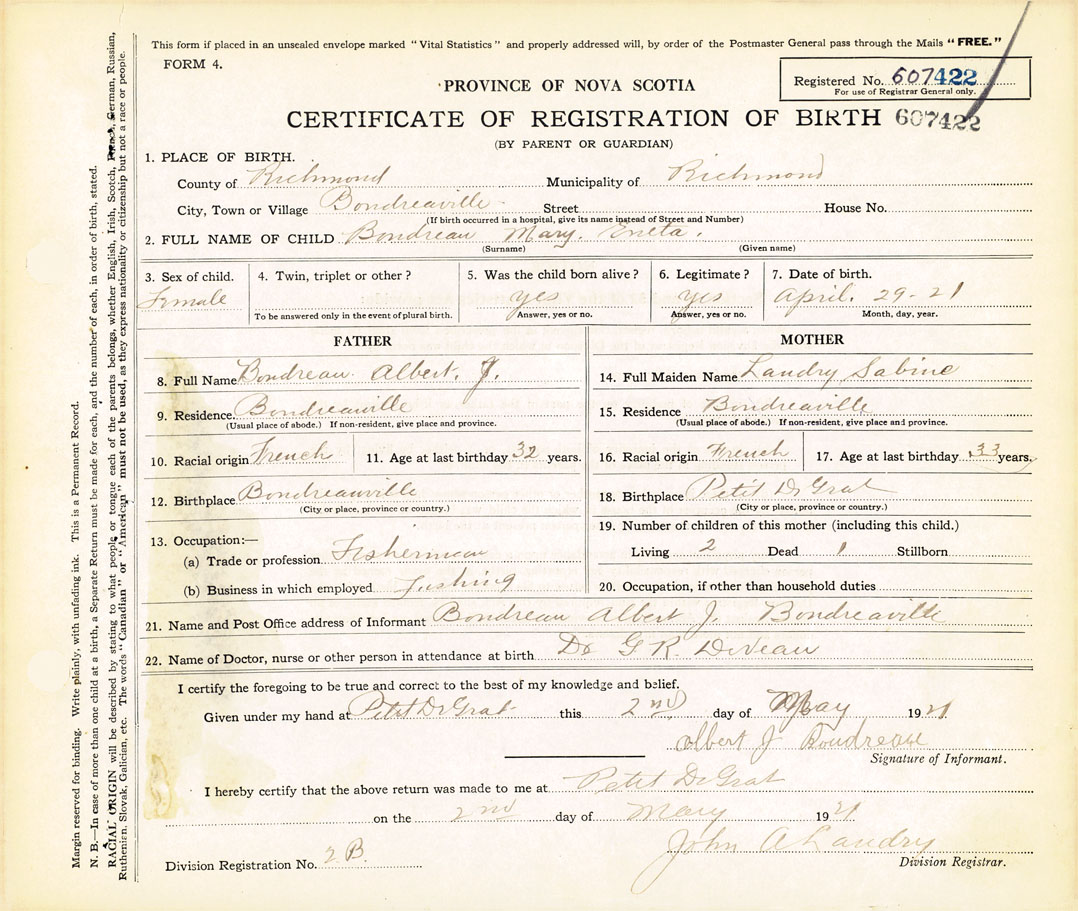 This form if placed in an unsealed envelope marked "Vital Statistics" and properly addressed will, by order of the Postmaster General pass through the Mails "FREE."
FORM 4.
Registered No. 607422
For use of Registrar General only.
PROVINCE OF NOVA SCOTIA
CERTIFICATE OF REGISTRATION OF BIRTH 607422
(BY PARENT OR GUARDIAN)
1. PLACE OF BIRTH.
County of Richmond Municipality of Richmond
City, Town or Village Boudreauville Street House No.
(If birth occurred in a hospital, give its name instead of Street and Number)
2. FULL NAME OF CHILD Boudreau Mary. Eneta.
(Surname) (Given name)
3. Sex of child. 4. Twin, triplet or other? 5. Was the child born alive? 6. Legitimate? 7. Date of birth.
Female yes yes April. 29-21
To be answered only in the event of plural birth. Answer, yes or no. Answer, yes or no. Month, day, year.
FATHER
8. Full Name Boudreau Albert. J.
9. Residence. Boudreauville
(Usual place of abode.) If non-resident, give place and province.
10. Racial origin French 11. Age at last birthday 32 years.
12. Birthplace Boudreauville
(City or place, province or country.)
13. Occupation:—
(a) Trade or profession Fisherman
(b) Business in which employed Fishing
MOTHER
14. Full Maiden Name Landry Sabine
15. Residence Boudreaville
(Usual place of abode.) If non-resident, give place and province.
16. Racial origin French 17. Age at last birthday 33 years.
18. Birthplace Petit De Grat
(City or place, province or country.)
19. Number of children of this mother (including this child.)
Living 2 Dead 1 Stillborn
20. Occupation, if other than household duties
21. Name and Post Office address of Informant Boudreau Albert J. Boudreaville
22. Name of Doctor, nurse or other person in attendance at birth Dr G R. DeVeau
I certify the foregoing to be true and correct to the best of my knowledge and belief.
Given under my hand at Petit De Grat this 2nd day of May 1921
Albert J Boudreau
Signature of Informant.
I hereby certify that the above return was made to me at Petit De Grat
on the 2nd day of May 1921
John A Landry
Division Registrar.
Division Registration No. 2 B.
Margin reserved for binding. Write plainly, with unfading ink. This is a Permanent Record.
N. B.—In case of more than one child at a birth, a Separate Return must be made for each, and the number of each, in order of birth, stated.
RACIAL ORIGIN will be described by stating to what people or tongue each of the parents belongs, whether English, Irish, Scotch, French, German, Russian,
Ruthenian, Slovak, Galician, etc. The words "Canadian" or "American" must not be used, as they express nationality or citizenship but not a race or people.